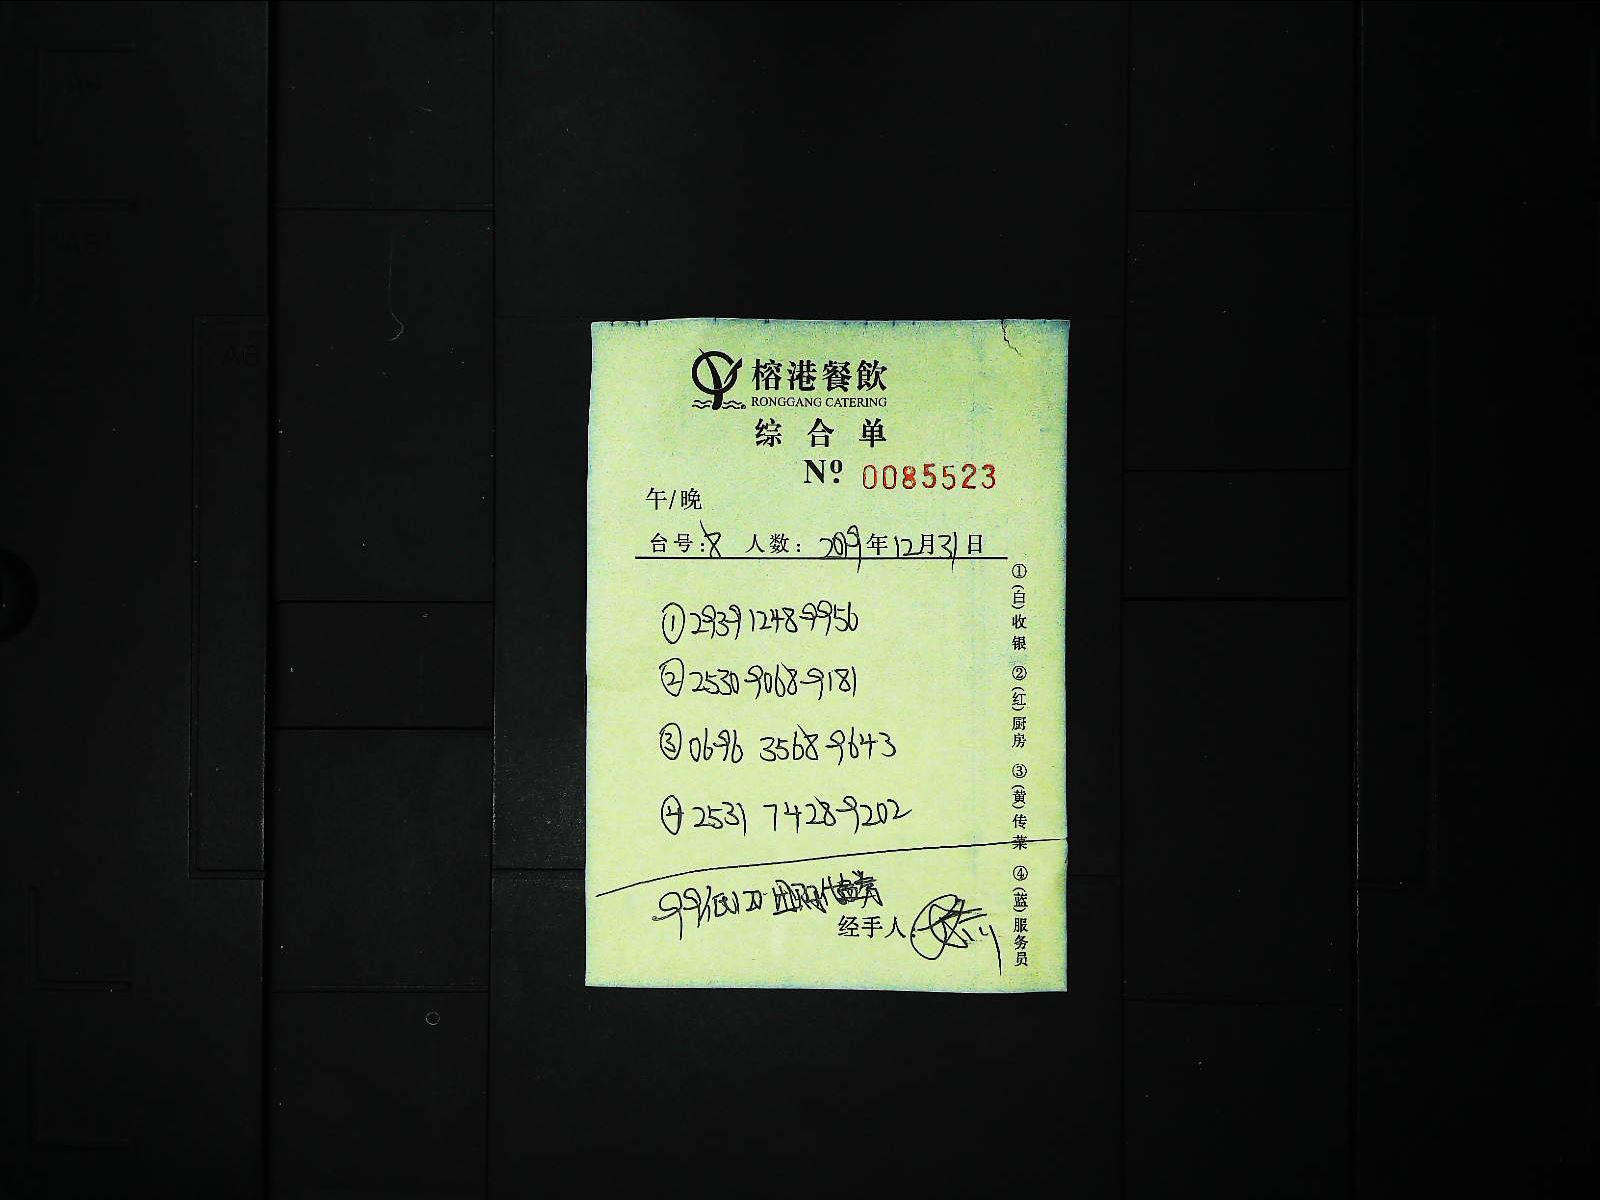 榕港餐飲
RONGGANG CATERING
综合单
Nº 0085523
午/晚
台号:8 人数: 2019年12月31日
①2939 1248 9956
②2530 9068 9181
③0696 3568 9643
④2531 7428 9202
经手人:
①(白)收银 ②(红)厨房 ③(黄)传菜 ④(蓝)服务员